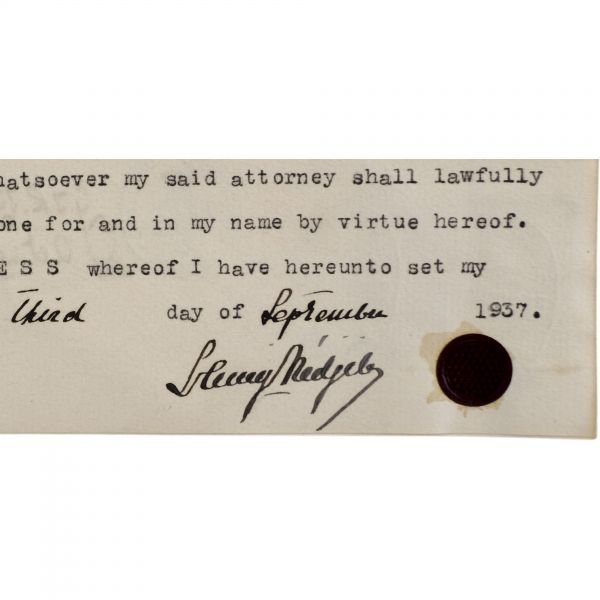 hatsoever my said attorney shall lawfully
one for and in my name by virtue hereof.
ESS whereof I have hereunto set my
Third day of September 1937.